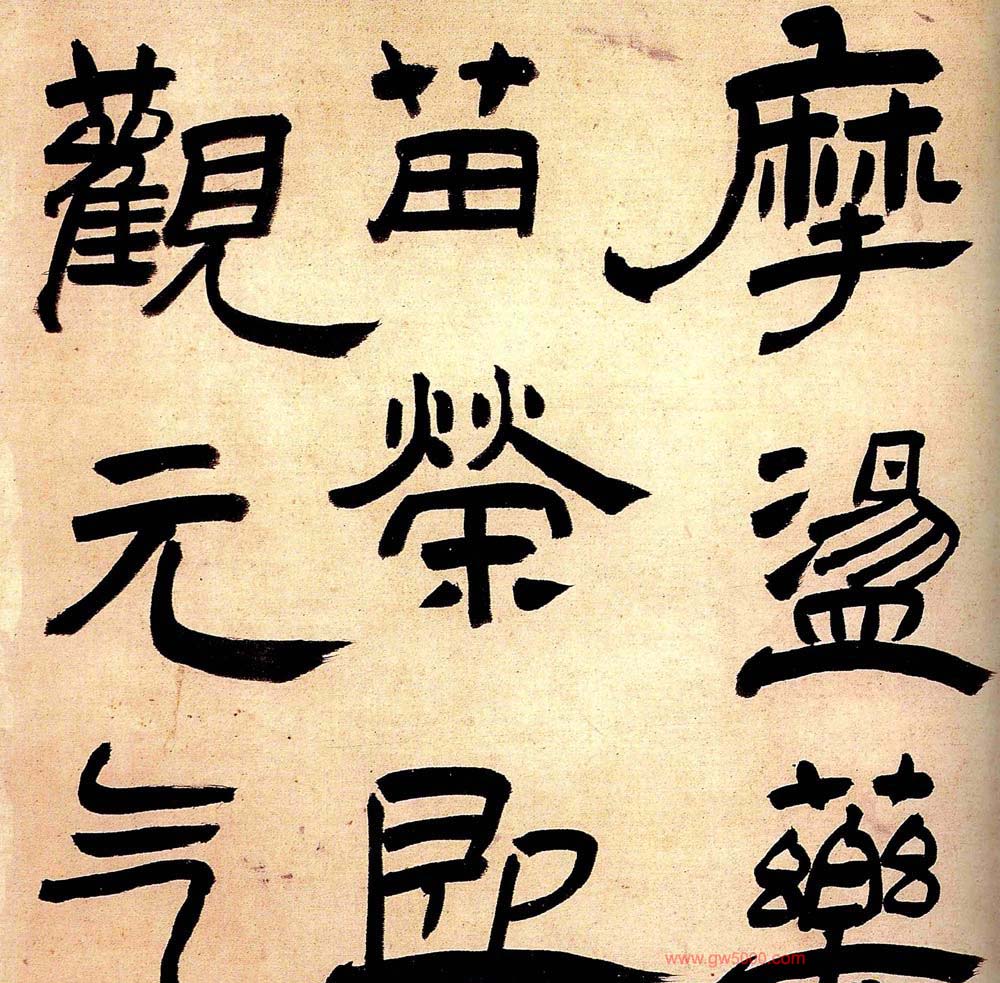 摩盪藥
苗榮即
觀元气
www.gw5000.com